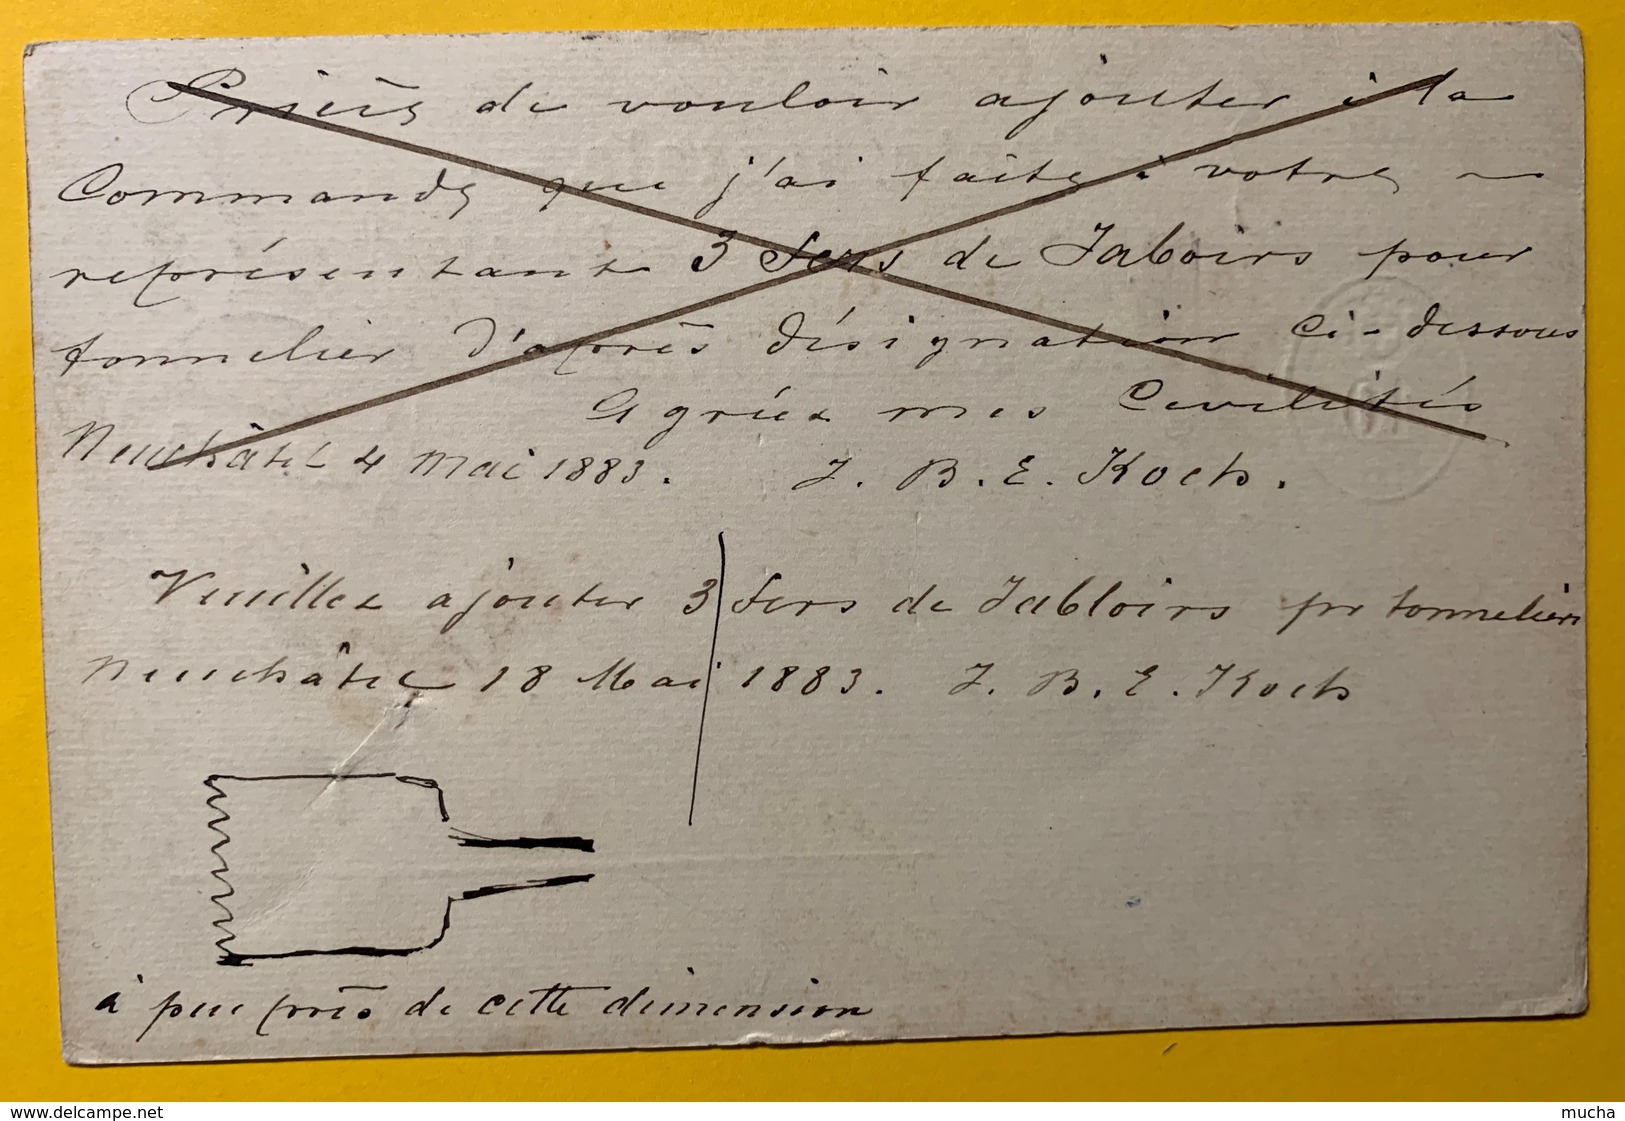 Prière de vouloir ajouter à la
Commande que j'ai faite à votre
représentant 3 fers de Jaboirs pour
tonnelier d'après désignation ci-dessous
Agréez mes Civilités
Neuchâtel 4 Mai 1883. J. B. E. Koch.
Veuillez ajouter 3 fers de Jabloirs pr tonneliers
Neuchâtel 18 Mai 1883. J. B. E. Koch
à peu près de cette dimension
www.delcampe.net mucha